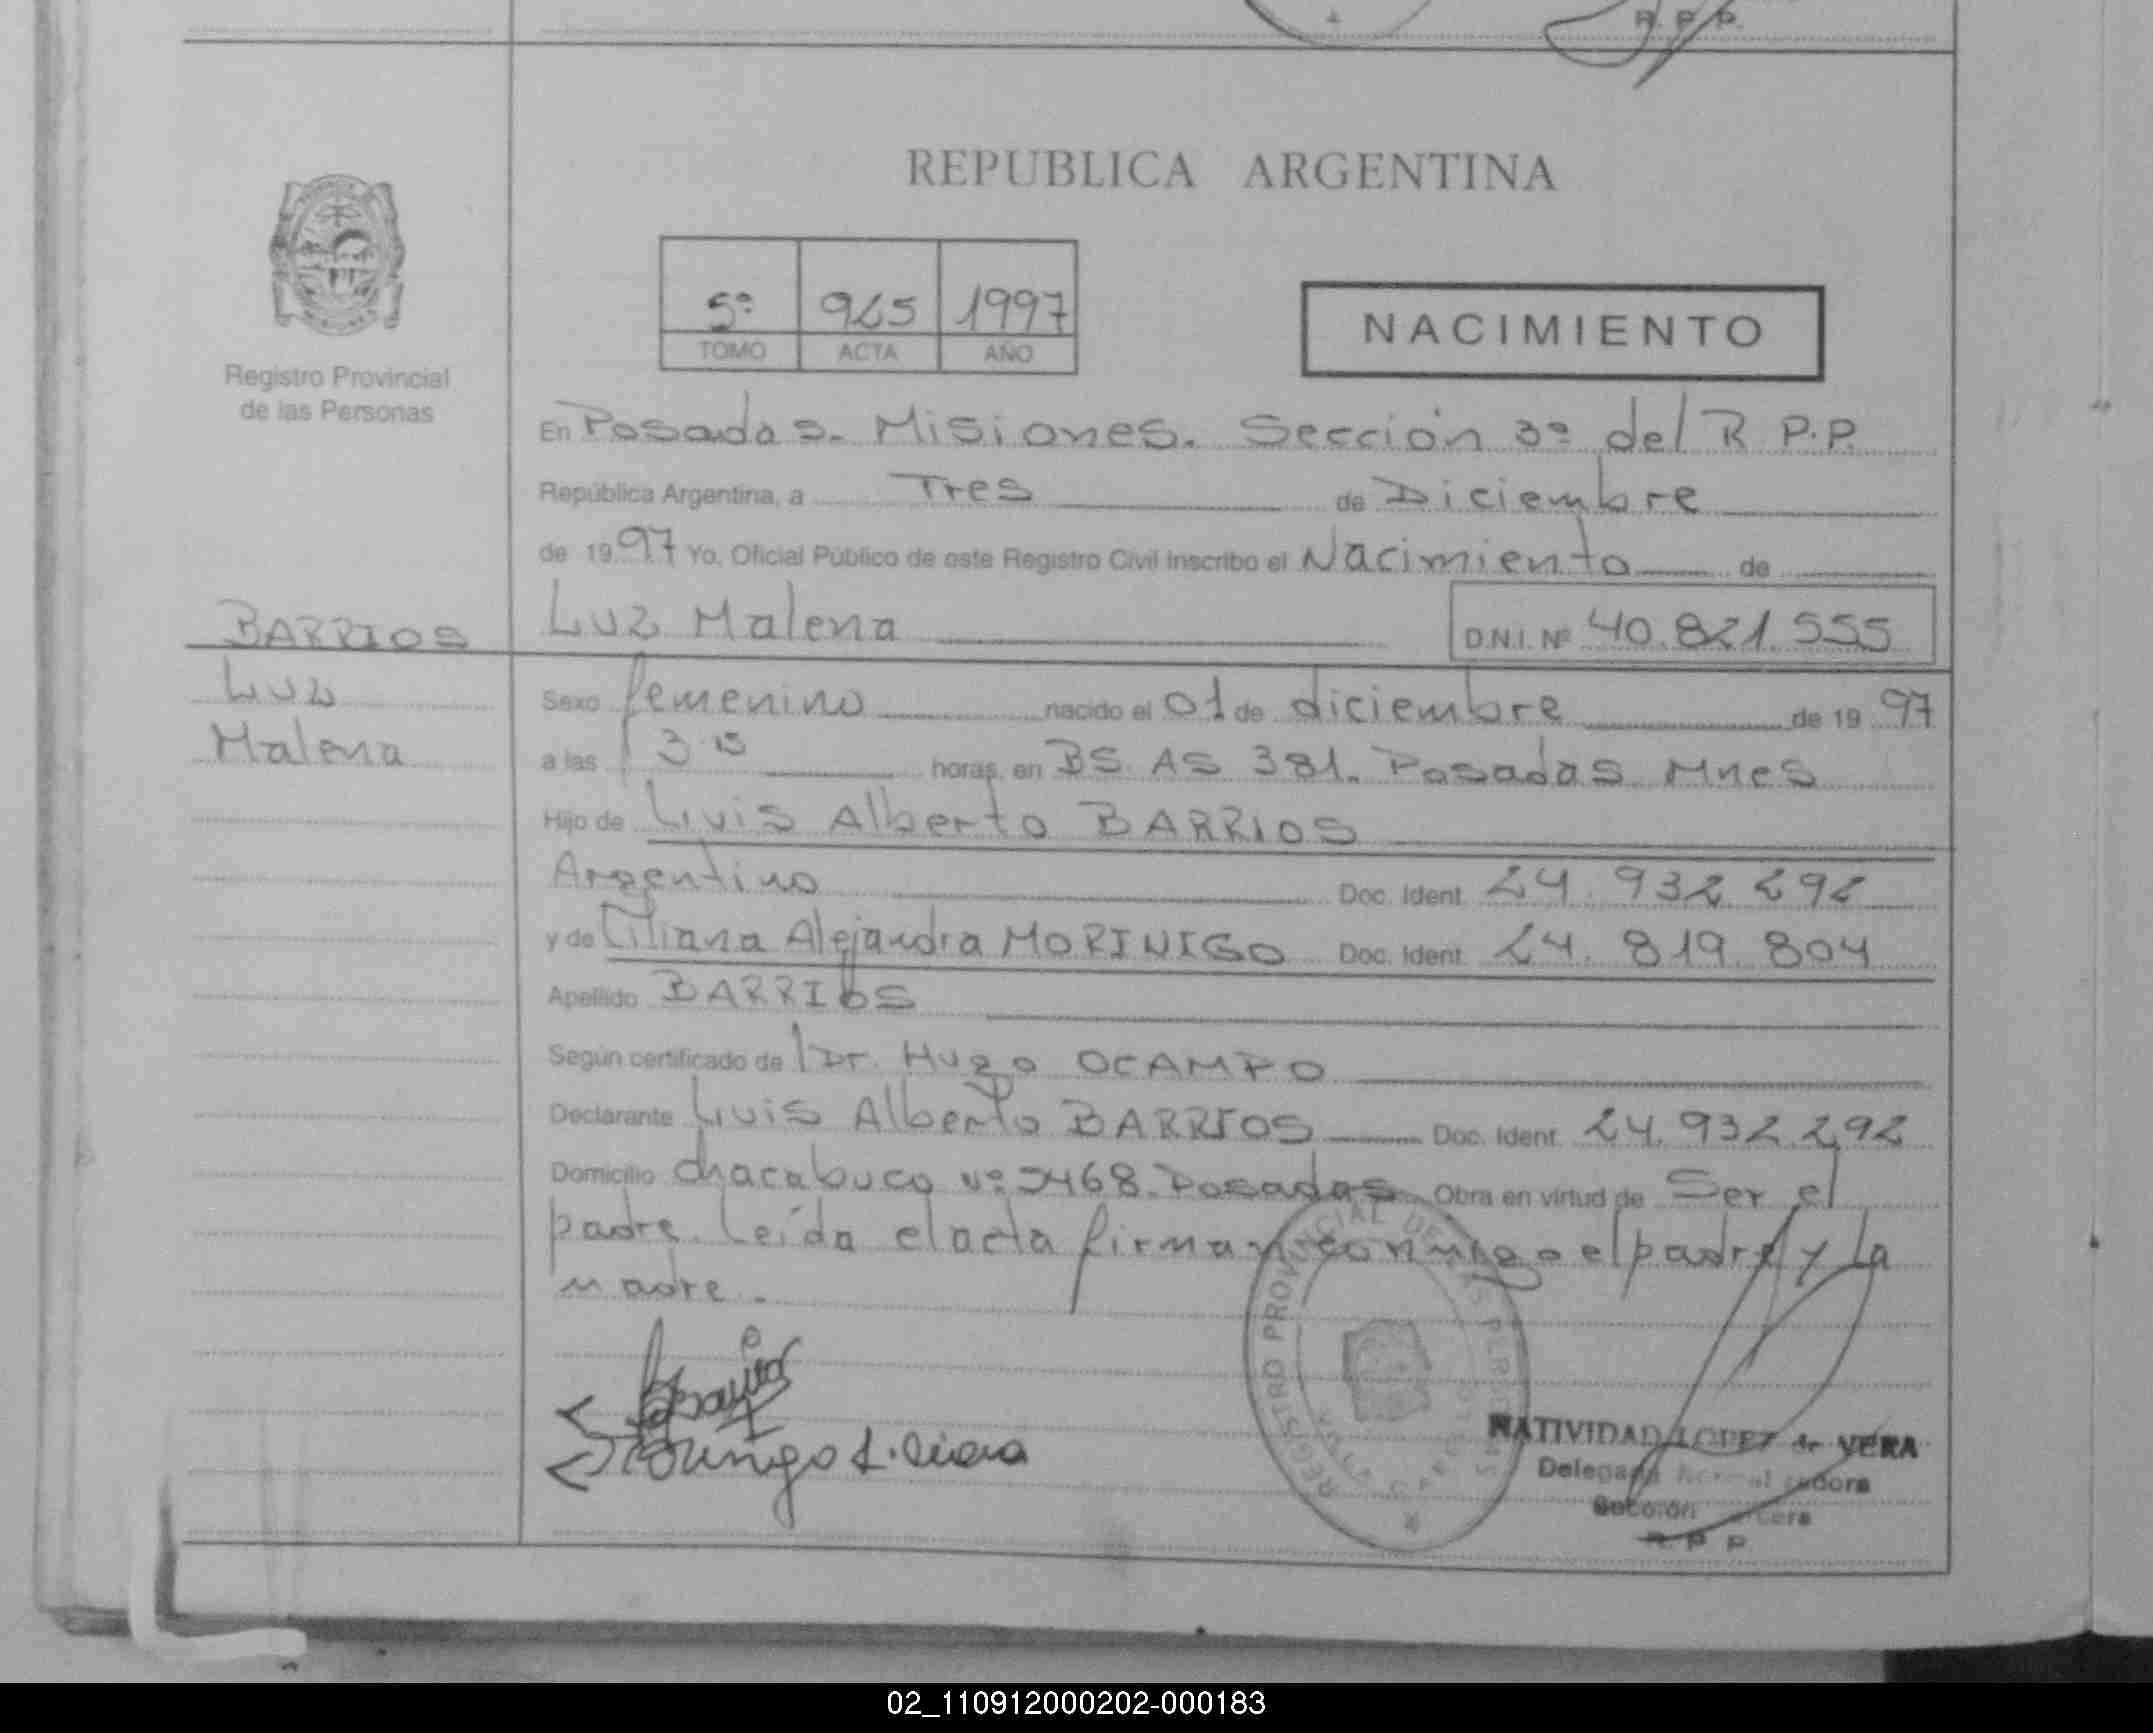 R. P. P.
REPUBLICA ARGENTINA
5º 925 1997
TOMO ACTA AÑO
NACIMIENTO
Registro Provincial
de las Personas
En Posadas. Misiones. Sección 3º del R P.P.
República Argentina, a Tres de Diciembre
de 1997 Yo, Oficial Público de este Registro Civil inscribo el Nacimiento de
BARRIOS
Luz
Malena
Luz Malena D.N.I. Nº 40.821.555
Sexo femenino nacido el 01 de diciembre de 1997
a las 3 15 horas, en BS. AS 381. Posadas Mnes
Hijo de Luis Alberto BARRIOS
Argentino Doc. Ident. 24.932 292
y de Liliana Alejandra MORINIGO Doc. Ident. 24. 819. 804
Apellido BARRIOS
Según certificado de Dr. Hugo OCAMPO
Declarante Luis Alberto BARRIOS Doc. Ident. 24.932.292
Domicilio chacabuco Nº 2468. Posadas Obra en virtud de Ser el
padre. Leída el acta firman conmigo el padre y la
madre.
REGISTRO PROVINCIAL DE LAS PERSONAS
NATIVIDAD LOPEZ de VERA
Delegada Normalizadora
Sección Tercera
R P P
02_110912000202-000183